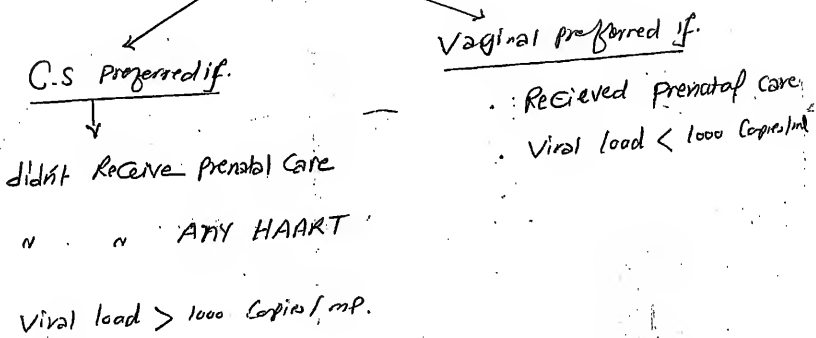 C.S Preferred if.
didn't Receive Prenatal Care
〃 〃 ANY HAART
Viral load > 1000 Copies/ml.
Vaginal preferred if.
. Recieved Prenatal Care
. Viral load < 1000 Copies/ml